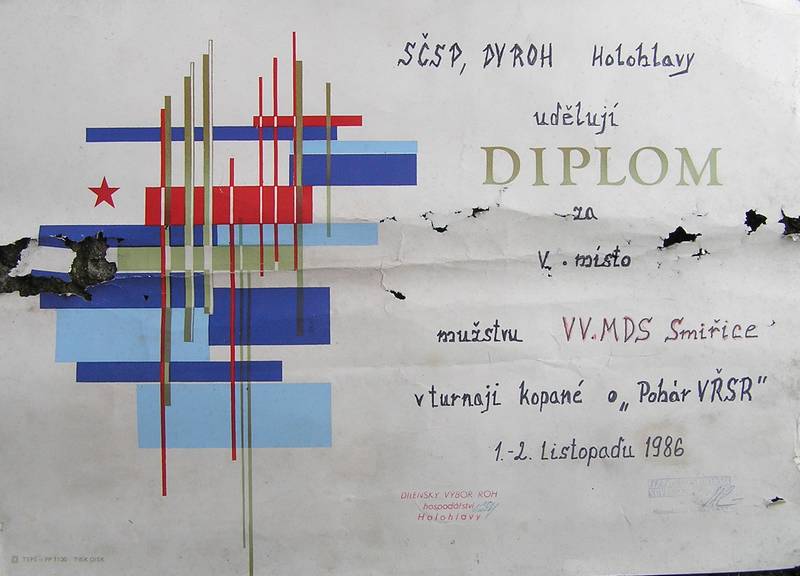 SČSP, DVROH Holohlavy
udělují
DIPLOM
za
V. místo
mužstvu VV.MDS Smiřice
v turnaji kopané o „Pohár VŘSR"
1.-2. Listopadu 1986
DÍLENSKÝ VÝBOR ROH
hospodářství
Holohlavy